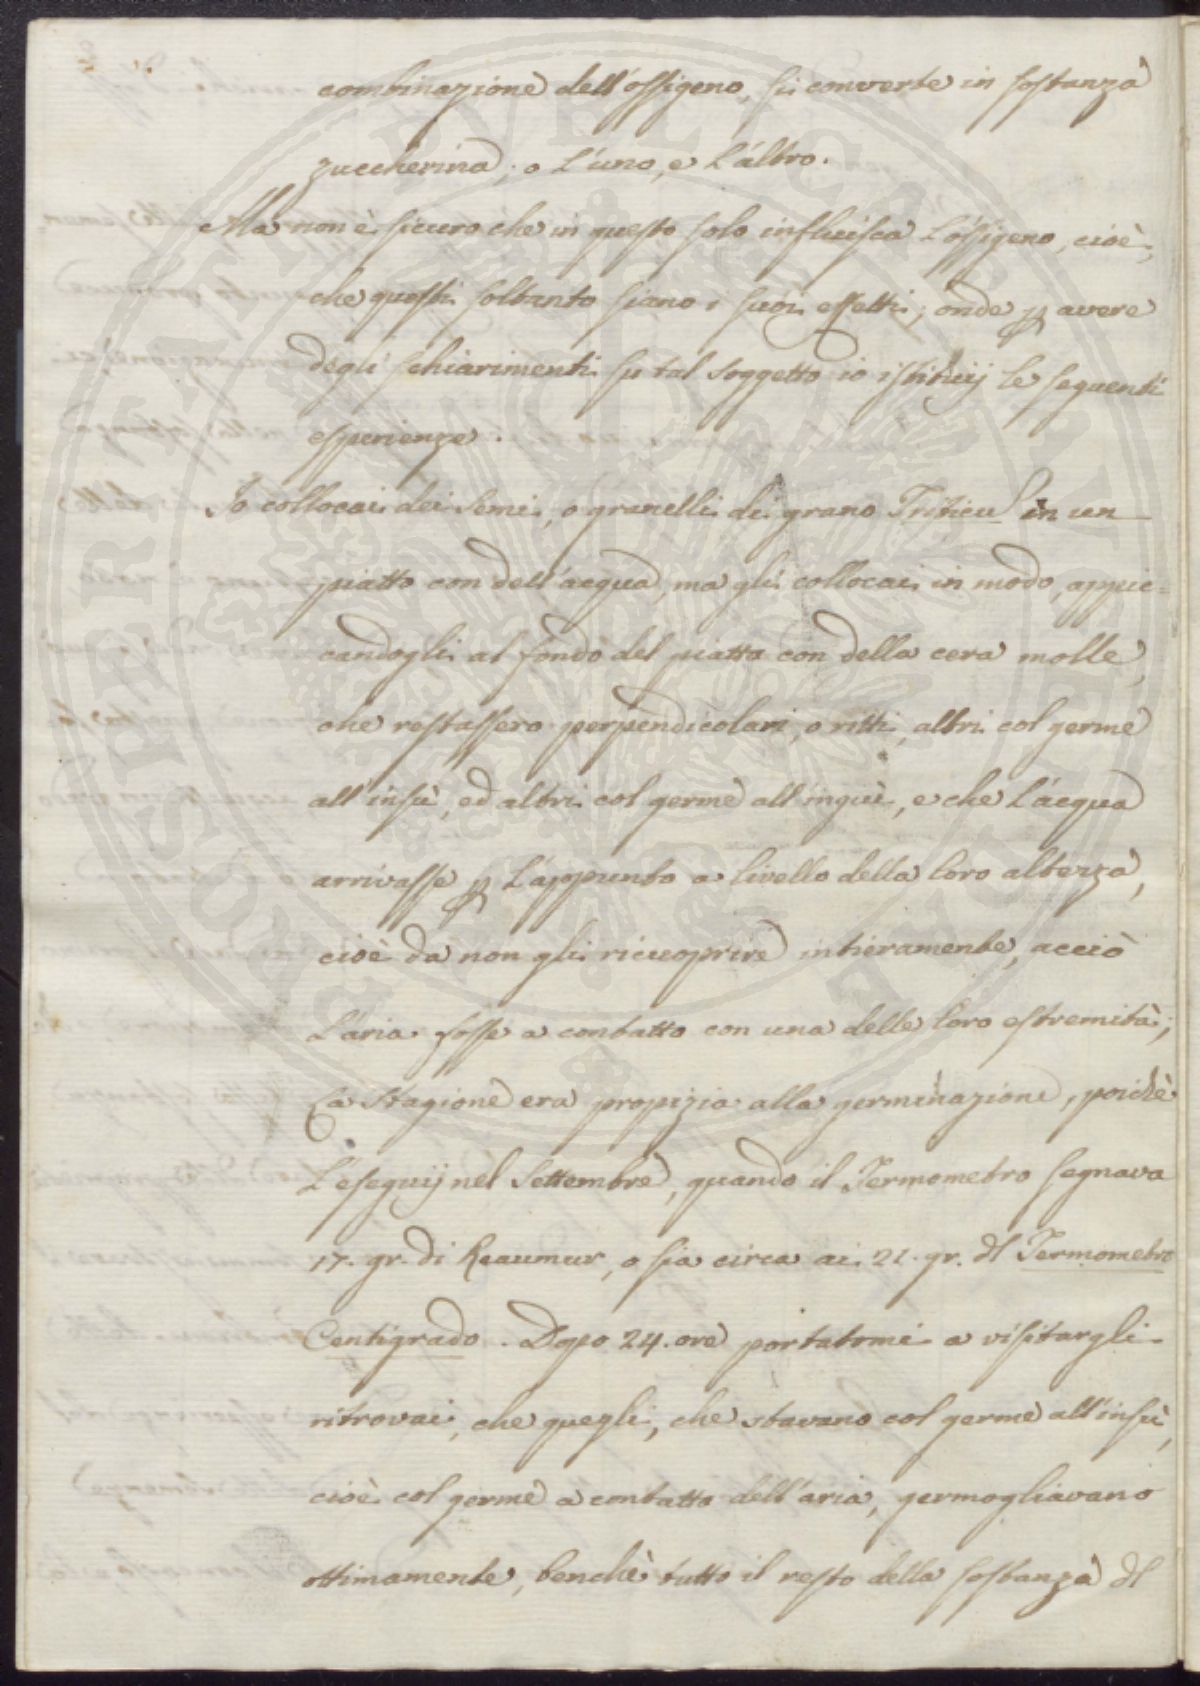 combinazione dell'ossigeno, si converte in sostanza
zuccherina; o l'uno, e l'altro.
Ma non è sicuro che in questo solo influisca l'ossigeno, cioè,
che questi soltanto siano i suoi effetti; onde p avere
degli schiarimenti su tal soggetto io istituij le seguenti
esperienze.
Io collocai dei semi, o granelli di grano Triticu in un
piatto con dell'acqua, ma gli collocai in modo, appic=
candogli al fondo del piatto con della cera molle,
che restassero perpendicolari, o ritti, altri col germe
all'insù, ed altri col germe all'ingiù, e che l'acqua
arrivasse p l'appunto a livello della loro altezza,
cioè da non gli ricuoprire intieramente, acciò
l'aria fosse a contatto con una delle loro estremità;
La Stagione era propizia alla germinazione, poichè
l'eseguij nel Settembre, quando il Termometro segnava
17. gr. di Reaumur, o sia circa ai 21. gr. dl Termometro
Centigrado. Dopo 24. ore portatomi a visitargli
ritrovai, che quegli, che stavano col germe all'insù,
cioè col germe a contatto dell'aria, germogliavano
ottimamente, benchè tutto il resto della sostanza dl
PVBLICAE VTILITATI PROSPERITATI